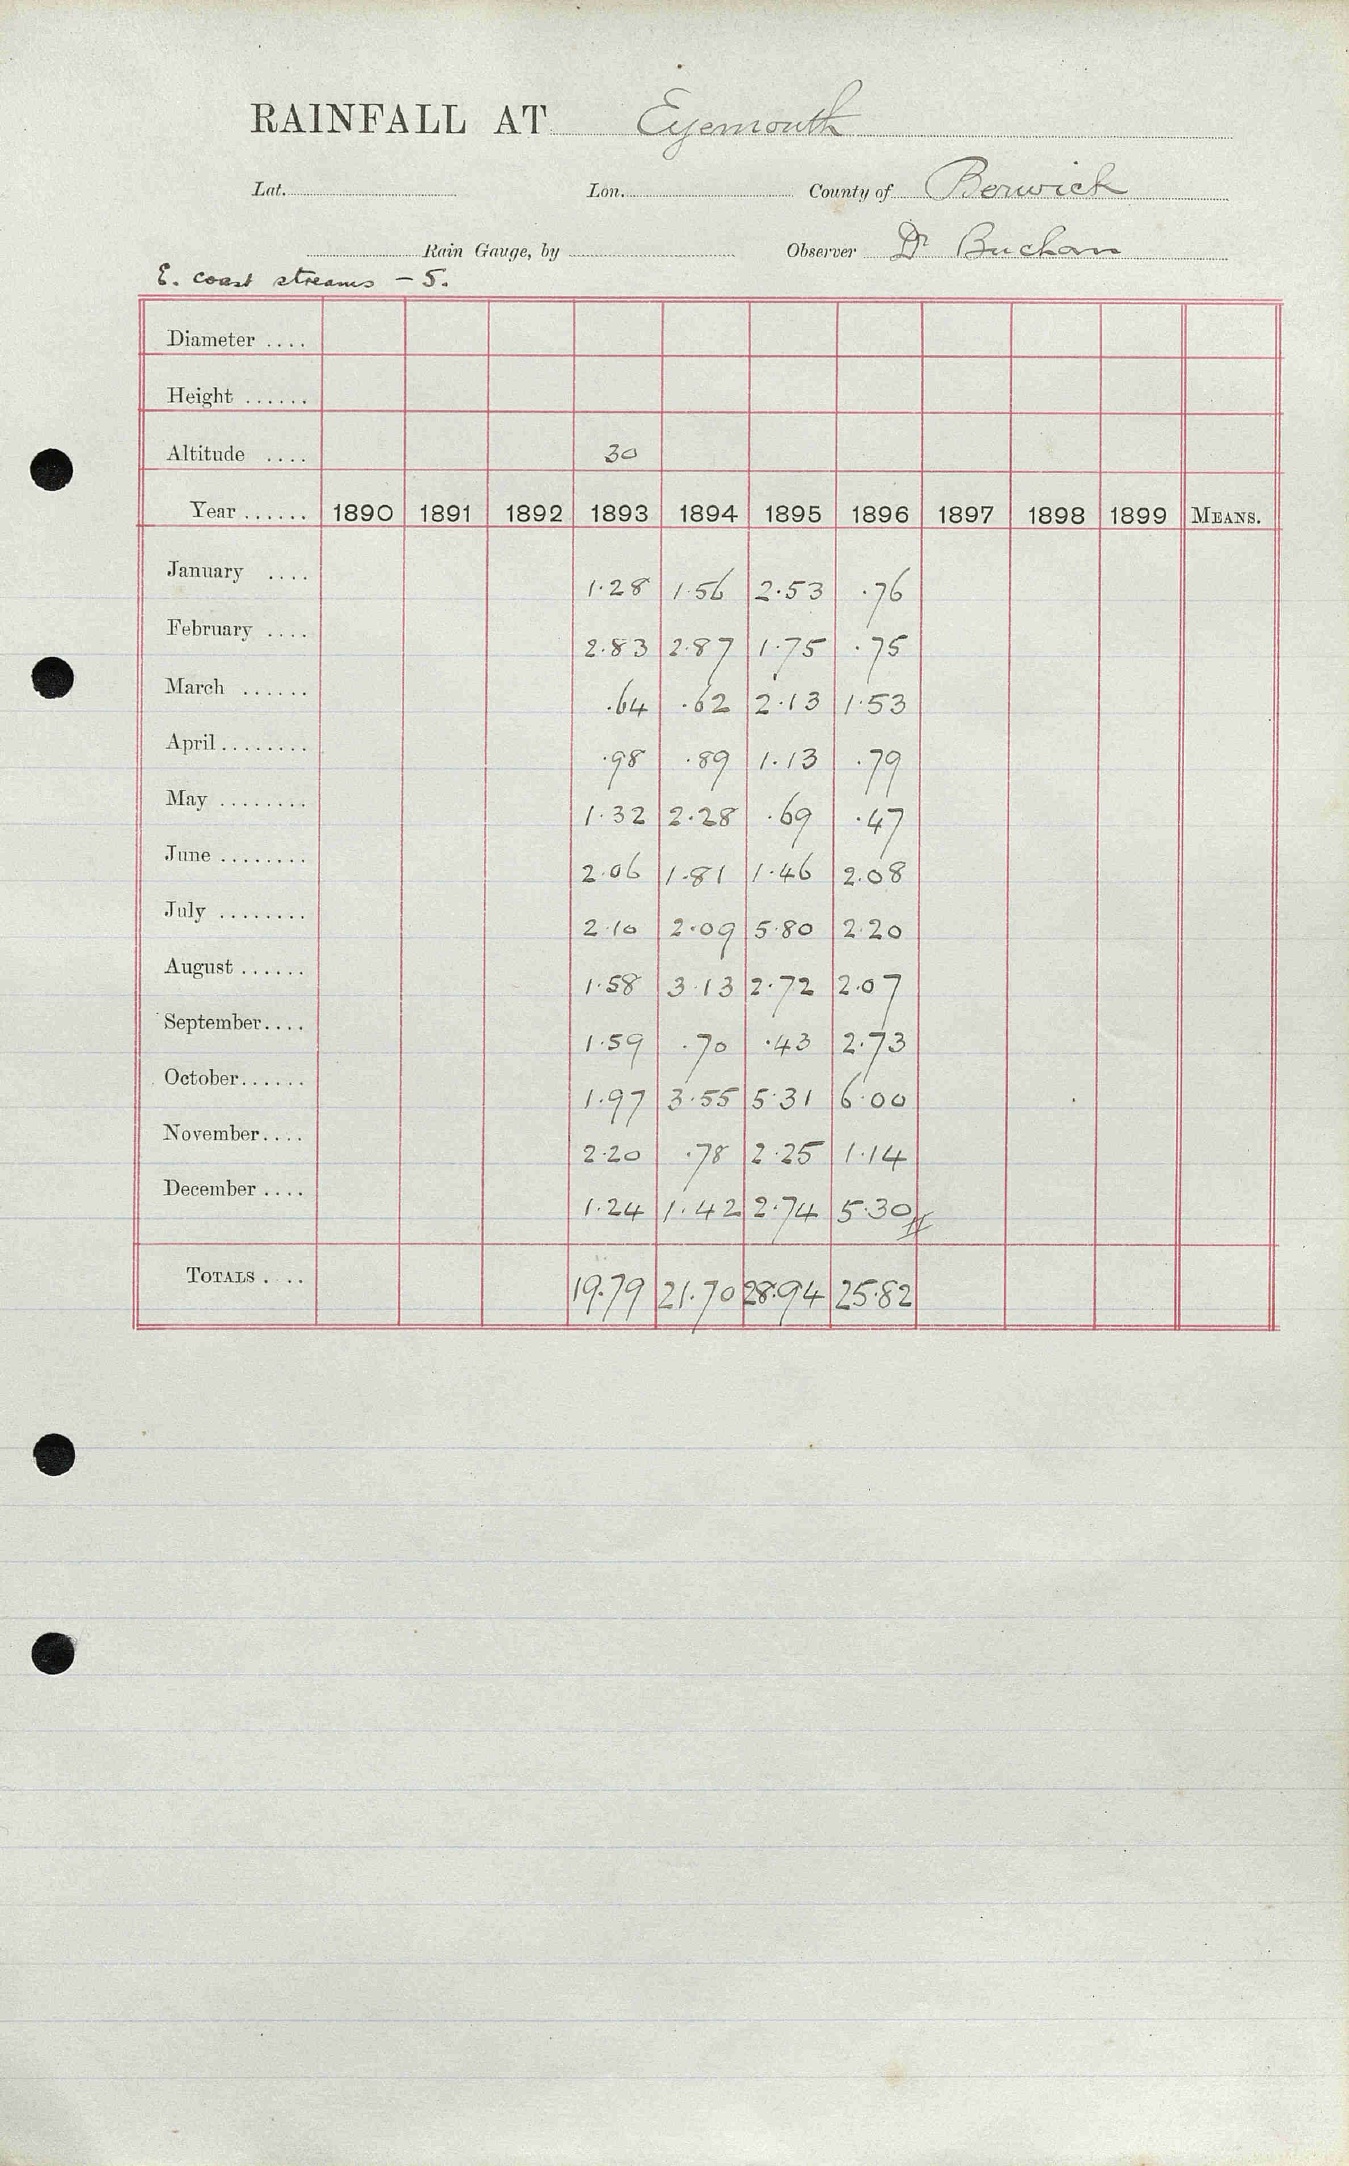 RAINFALL AT Eyemouth
Lat. Lon. County of Berwick
Rain Gauge, by Observer Dr Buchan
E. coast streams - 5.
Diameter ....
Height ......
Altitude .... 30
Year ...... 1890 1891 1892 1893 1894 1895 1896 1897 1898 1899 MEANS.
January .... 1.28 1.56 2.53 .76
February .... 2.83 2.87 1.75 .75
March ...... .64 .62 2.13 1.53
April ........ .98 .89 1.13 .79
May ........ 1.32 2.28 .69 .47
June ........ 2.06 1.81 1.46 2.08
July ........ 2.10 2.09 5.80 2.20
August ...... 1.58 3.13 2.72 2.07
September.... 1.59 .70 .43 2.73
October...... 1.97 3.55 5.31 6.00
November.... 2.20 .78 2.25 1.14
December .... 1.24 1.42 2.74 5.30
TOTALS . .. 19.79 21.70 28.94 25.82